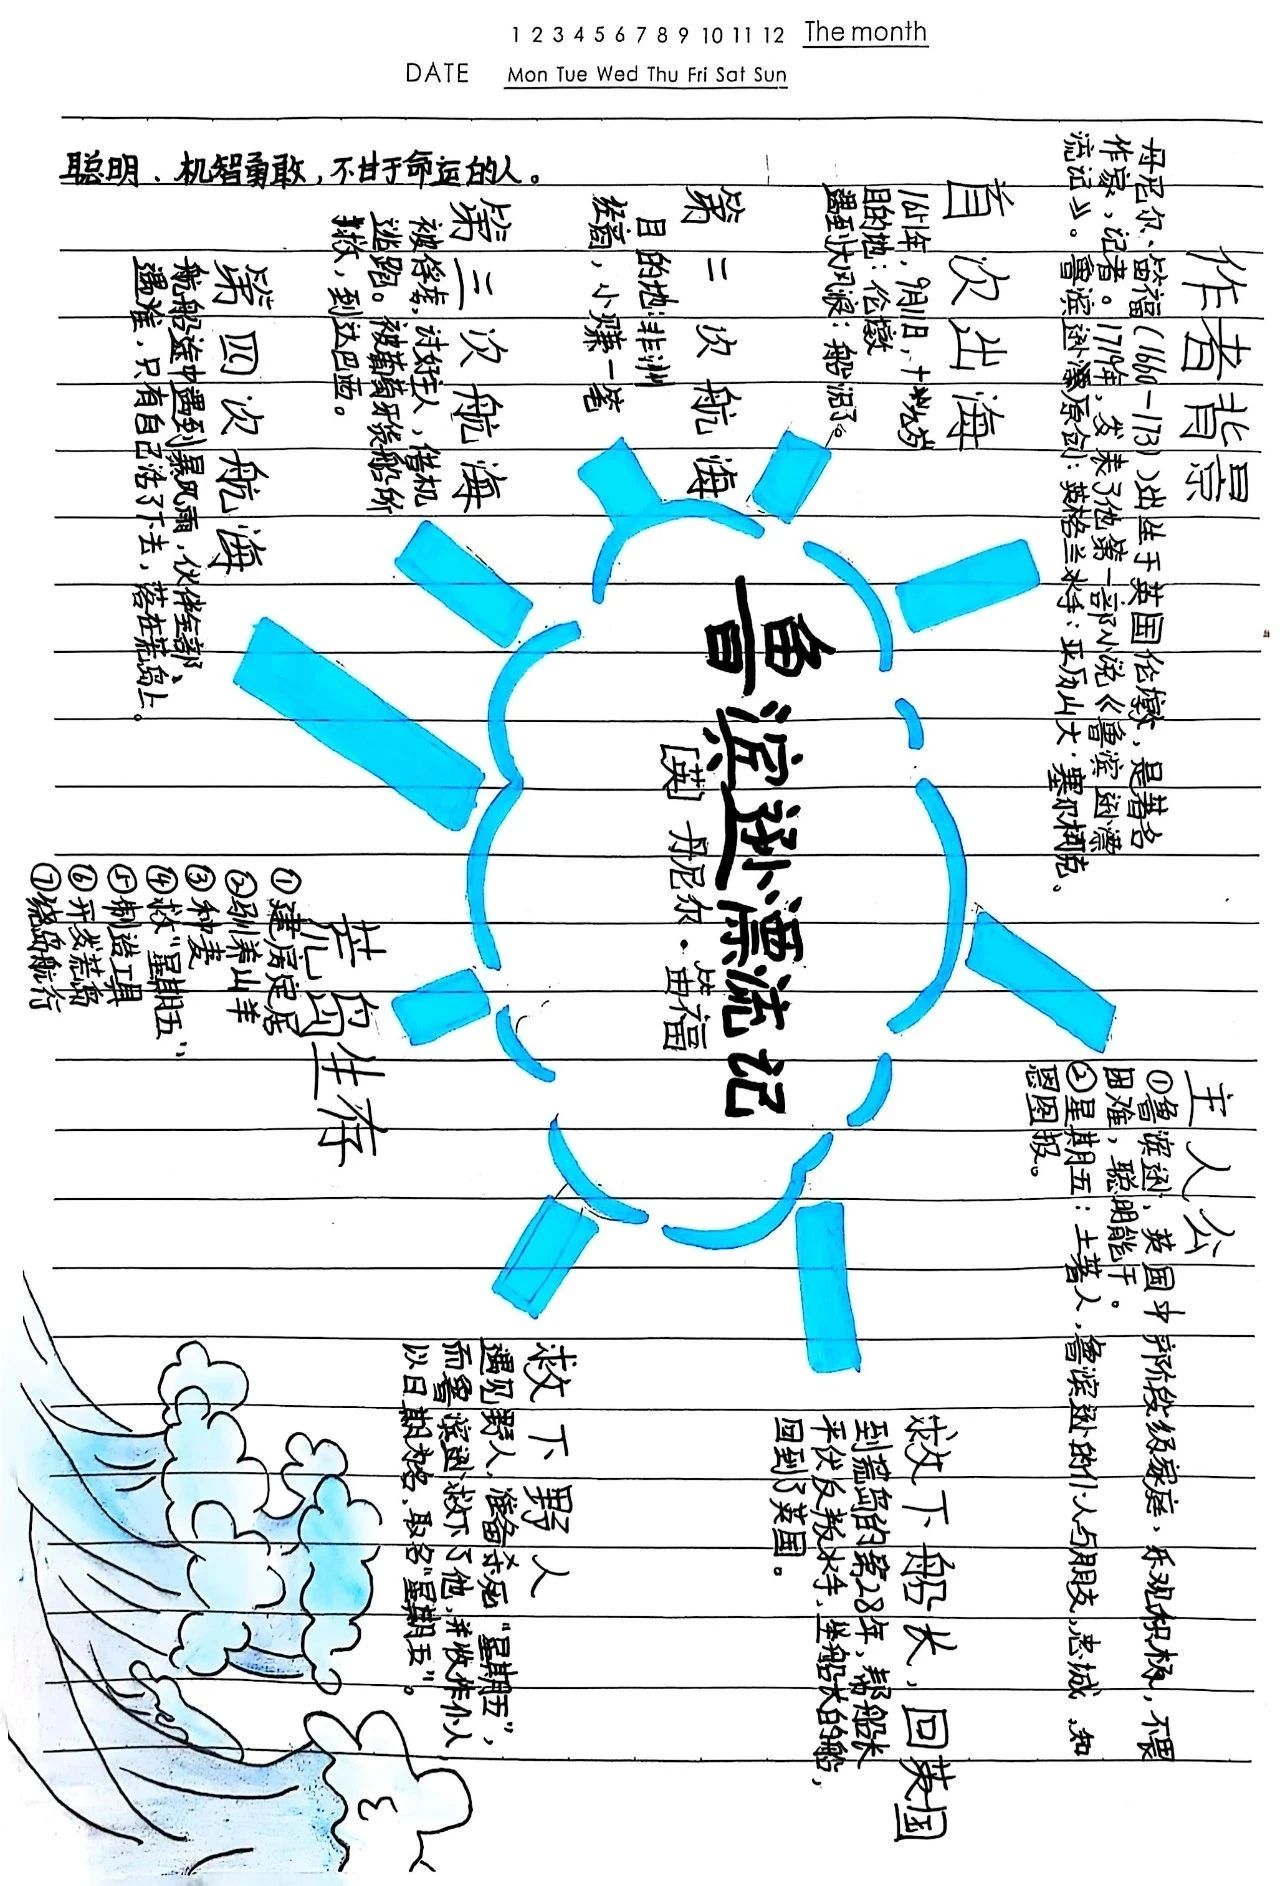 1 2 3 4 5 6 7 8 9 10 11 12 The month
DATE Mon Tue Wed Thu Fri Sat Sun
聪明、机智勇敢，不甘于命运的人。
鲁滨逊漂流记
[英] 丹尼尔·笛福
作者背景
丹尼尔·笛福(1660-1731)出生于英国伦墩，是著名
作家、记者。1719年，发表了他第一部小说《鲁滨逊漂
流记》。鲁滨逊漂原创：英格兰水手：亚历山大·塞尔柯克。
首次出海
1651年，9月1日，十九岁
目的地：伦墩
遇到大风浪：船沉了。
第二次航海
目的地：非洲
经商，小赚一笔
第三次航海
被俘虏，讨好主人，借机
逃跑。被葡萄牙货船所
救，到达巴西。
第四次航海
航船途中遇到暴风雨，伙伴全部
遇难，只有自己活了下去，落在荒岛上。
荒岛的生存
①建房定居
②驯养山羊
③种麦
④救“星期五”
⑤制造工具
⑥开发荒岛
⑦绕岛航行
救下野人
遇见野人，准备杀死“星期五”，
而鲁滨逊救下了他，并收作仆人
以日期为名，取名“星期五”。
救下船长，回英国
到荒岛的第28年，帮船长
平伏反叛水手，坐船长的船，
回到了英国。
主人公
①鲁滨逊，英国中产阶段级家庭，乐观积极，不畏
困难，聪明能干。
②星期五：土著人，鲁滨逊的仆人与朋友，忠城、知
恩图报。